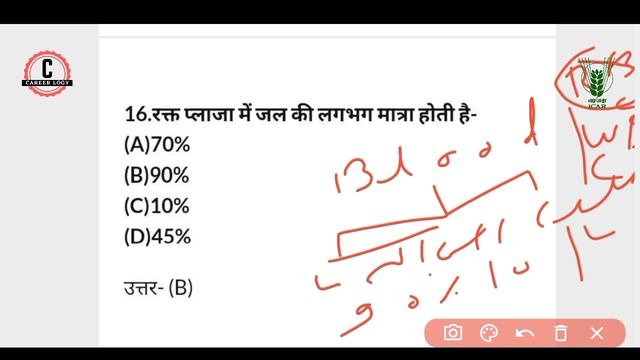 C
CAREER LOGY
ICAR
16.रक्त प्लाजा में जल की लगभग मात्रा होती है-
(A)70%
(B)90%
(C)10%
(D)45%
उत्तर- (B)
Blood
90% 10